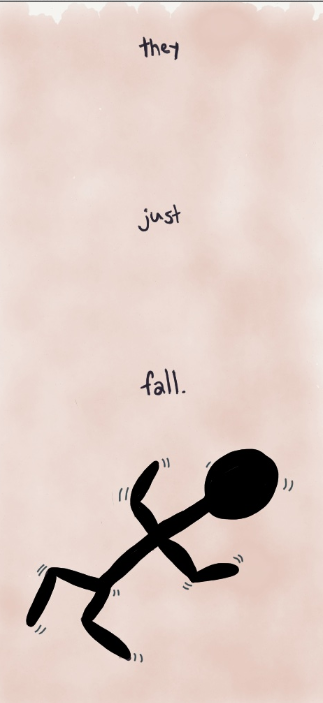 they
just
fall.